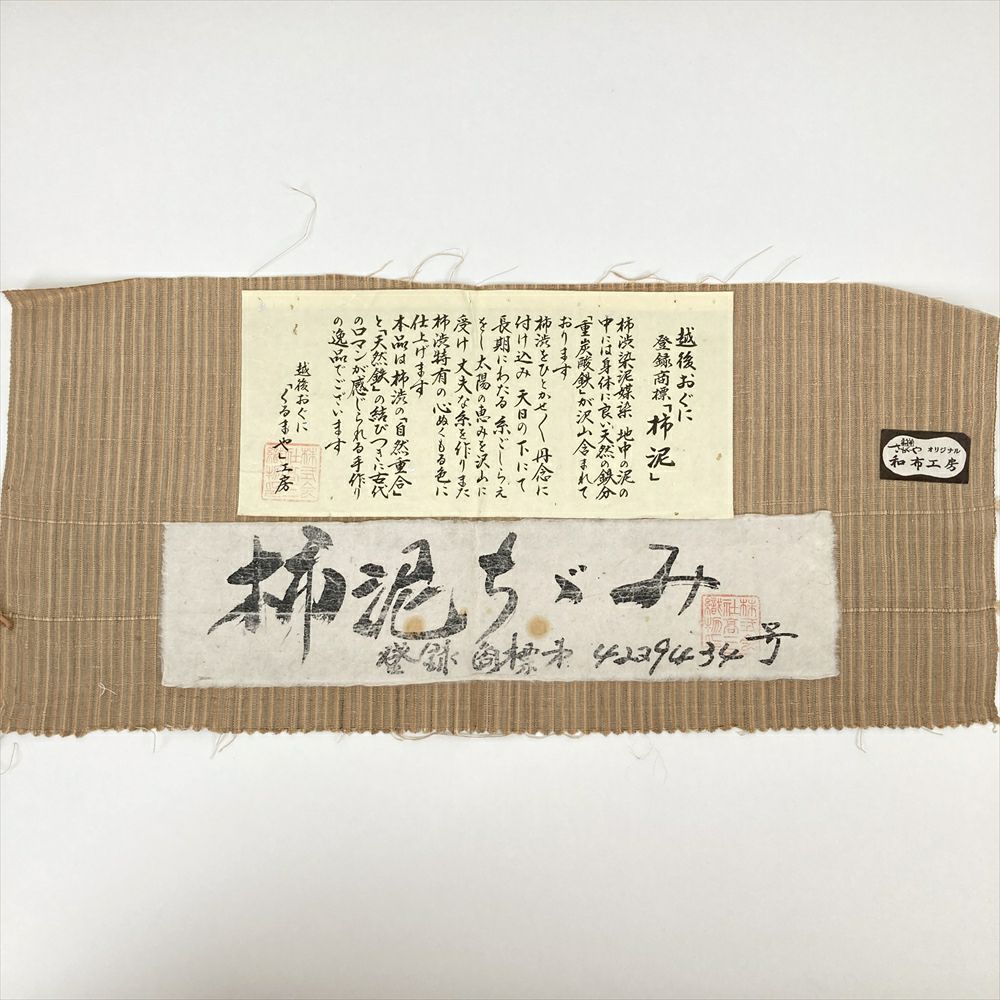 越後おぐに
登録商標「柿泥」
柿渋染泥媒染 地中の泥の
中には身体に良い天然の鉄分
「重炭酸鉄」が沢山含まれて
おります
柿渋をひとかせ〱丹念に
付け込み 天日の下にて
長期にわたる 糸ごしらえ
をし 太陽の恵みを沢山に
受け 丈夫な糸を作りまた
柿渋特有の心ぬくもる色に
仕上げます
本品は柿渋の「自然重合」
と「天然鉄」の結びつきに古代
のロマンが感じられる手作り
の逸品でございます
越後おぐに
「くるまや」工房
オリジナル
和布工房
柿泥ちゞみ
登録商標才4239434号